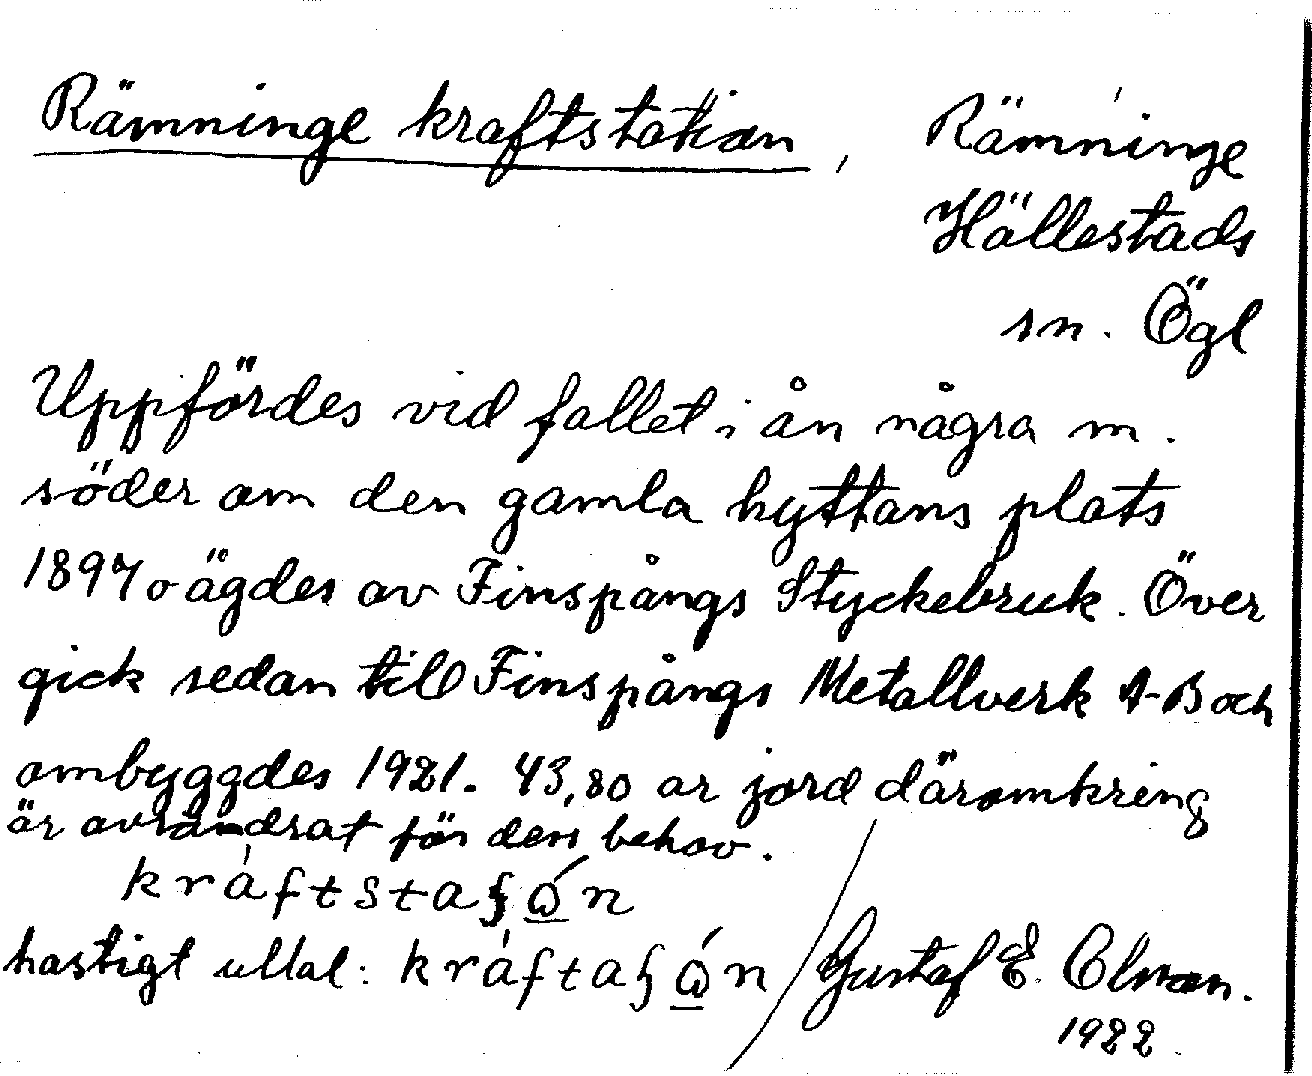 Rämninge kraftstation, Rämninge
Hällestads
sn. Ögl
Uppfördes vid fallet i ån några m.
söder om den gamla hyttans plats
1897 o ägdes av Finspångs Styckebruk. Över
gick sedan till Finspångs Metallverk A-B och
ombyggdes 1921. 43,80 ar jord däromkring
är avsöndrat för dess behov.
kráftstaɧώ̲n
hastigt uttal: kráftaɧώ̲n / Gustaf E.
1922